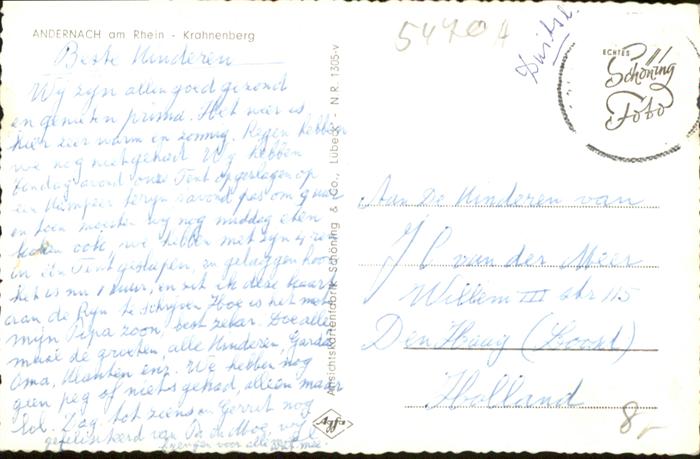 ANDERNACH am Rhein - Krahnenberg
Beste Kinderen
Wij zijn allen goed gezond
en genieten prima. Het weer is
hier zeer warm en zonnig. Regen hebben
we nog niet gehad. Wij hebben
Zondag avond onze Tent opgeslagen op
een Kampeer terijn savond pas om 9 uur
en toen moesten wij nog middag eten
koken ook, we hebben met zijn
in een Tent geslapen, zo gelachen hoor
het is nu 1 uur, en zit ik deze kaart
aan de Rijn te schrijven Hoe is het met
mijn Pepa zoon, best zeker. Doe alle
de groeten, alle Kinderen
Oma, Klanten enz. We hebben nog
geen peg of niets gehad, alleen maar
lol. Dag tot ziens en Gerrit nog
gefeliciteerd van Pa en Moe, wij
voor alle mee
Ansichtskartenfabrik Schöning & Co., Lübeck N.R. 1305-v
5470A
Duitsl.
ECHTES
Schöning
Foto
Aan De Kinderen van
J C van der Meer
Willem III str 115
Den Haag (Loosd)
Holland
Agfa
8,-